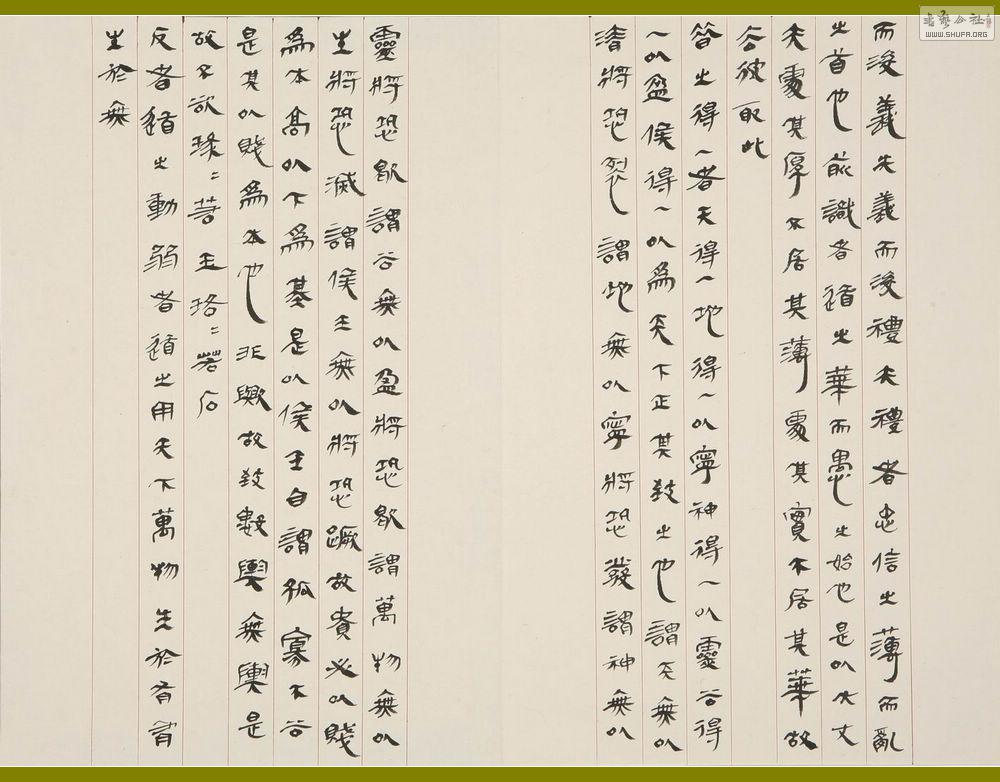 而後義失義而後禮夫禮者忠信之薄而亂
之首也前識者道之華而愚之始也是以大丈
夫處其厚不居其薄處其實不居其華故
去彼取此
昔之得一者天得一地得一以寧神得一以靈谷得
一以盈侯得一以為天下正其致之也謂天無以
清將恐裂謂地無以寧將恐發謂神無以
靈將恐歇謂谷無以盈將恐歇謂萬物無以
生將恐滅謂侯王無以將恐蹶故貴必以賤
為本高以下為基是以侯王自謂孤寡不谷
是其以賤為本也非歟故致數輿無輿是
故不欲琭〻若玉珞〻若石
反者道之動弱者道之用天下萬物生於有有
生於無
書藝公社
WWW.SHUFA.ORG